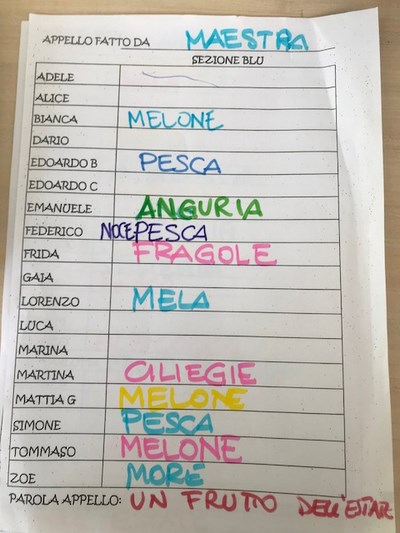 APPELLO FATTO DA MAESTRA
SEZIONE BLU
ADELE
ALICE
BIANCA MELONE
DARIO
EDOARDO B PESCA
EDOARDO C
EMANUELE ANGURIA
FEDERICO NOCEPESCA
FRIDA FRAGOLE
GAIA
LORENZO MELA
LUCA
MARINA
MARTINA CILIEGIE
MATTIA G MELONE
SIMONE PESCA
TOMMASO MELONE
ZOE MORE
PAROLA APPELLO: UN FRUTTO DELL'ESTATE